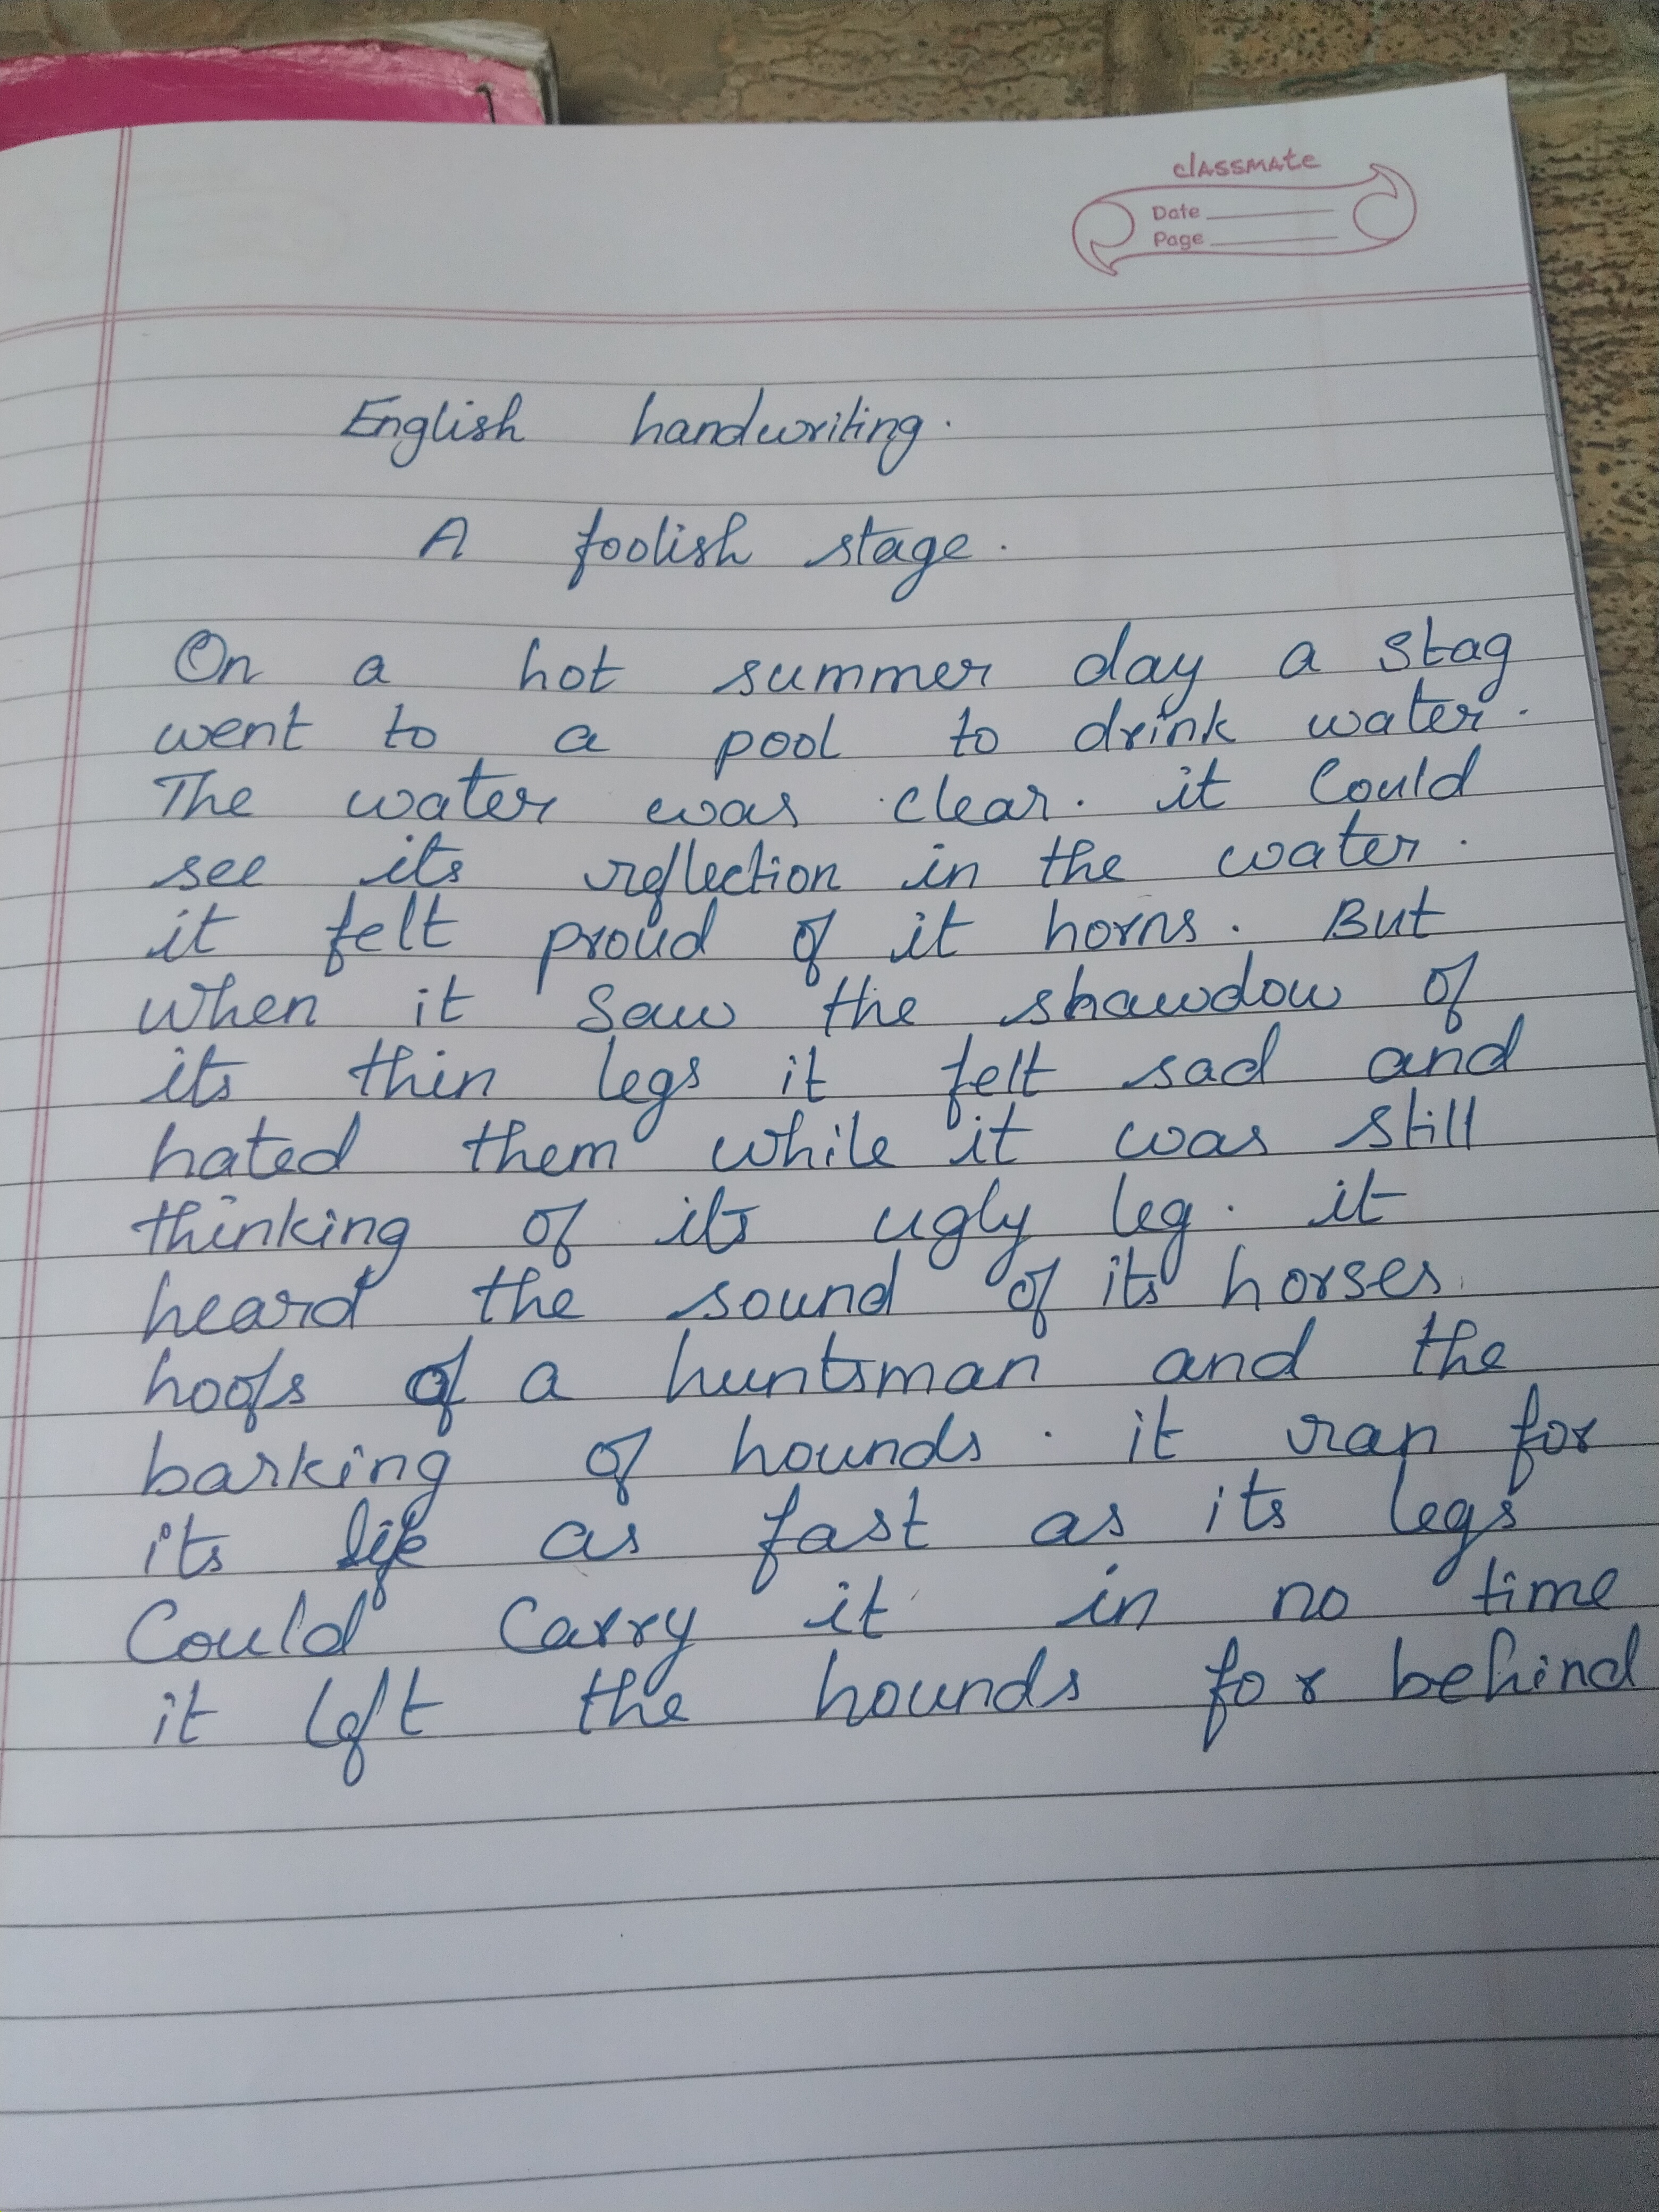 classmate
Date
Page
English handwriting.
A foolish stage.
On a hot summer day a stag
went to a pool to drink water.
The water was clear. it Could
see its reflection in the water.
it felt proud of it horns. But
when it Saw the shawdow of
its thin legs it felt sad and
hated them while it was still
thinking of its ugly leg. it
heard the sound of its horses.
hoofs of a huntsman and the
barking of hounds. it ran for
its life as fast as its legs
Could Carry it in no time
it left the hounds for behind